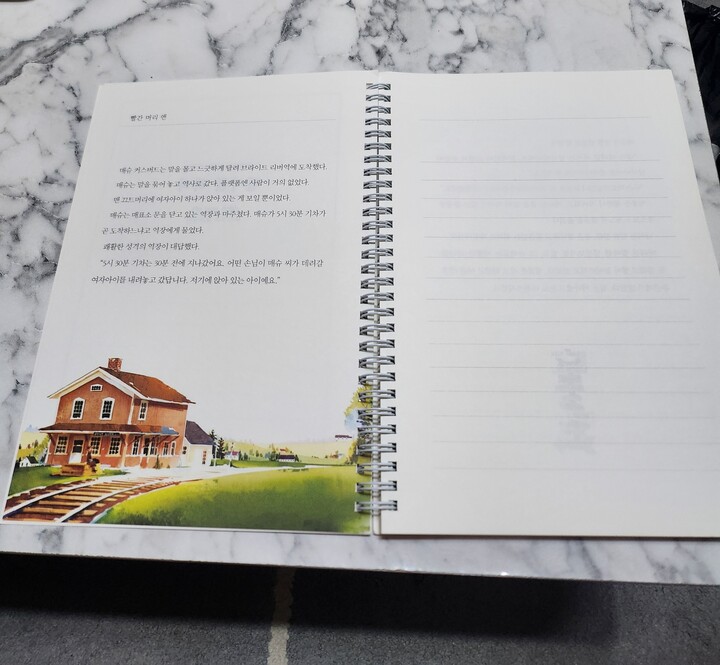 빨간 머리 앤
매슈 커스버드는 말을 몰고 느긋하게 달려 브라이트 리버역에 도착했다.
매슈는 말을 묶어 놓고 역사로 갔다. 플랫폼엔 사람이 거의 없었다.
맨 끄트머리에 여자아이 하나가 앉아 있는 게 보일 뿐이었다.
매슈는 매표소 문을 닫고 있는 역장과 마주쳤다. 매슈가 5시 30분 기차가
곧 도착하느냐고 역장에게 물었다.
쾌활한 성격의 역장이 대답했다.
"5시 30분 기차는 30분 전에 지나갔어요. 어떤 손님이 매슈 씨가 데려갈
여자아이를 내려놓고 갔답니다. 저기에 앉아 있는 아이예요."